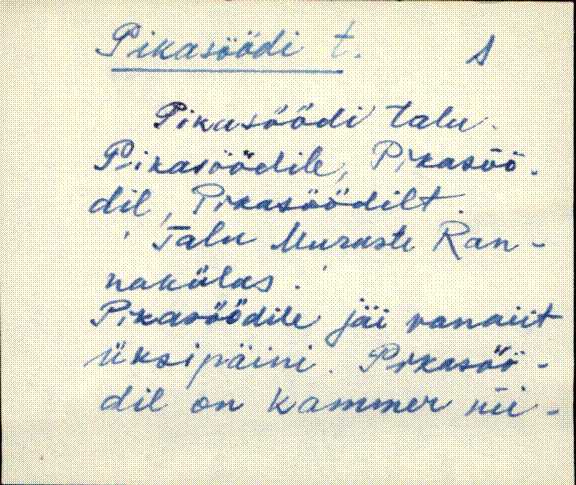 Pikasöödi t. S
Pikasöödi talu.
Pikasöödile, Pikasöö-
dil, Pikasöödilt.
Talu Muraste Ran-
nakülas.
Pikasöödile jäi vanaiit
üksipäini. Pikasöö-
dil on kammer nii-